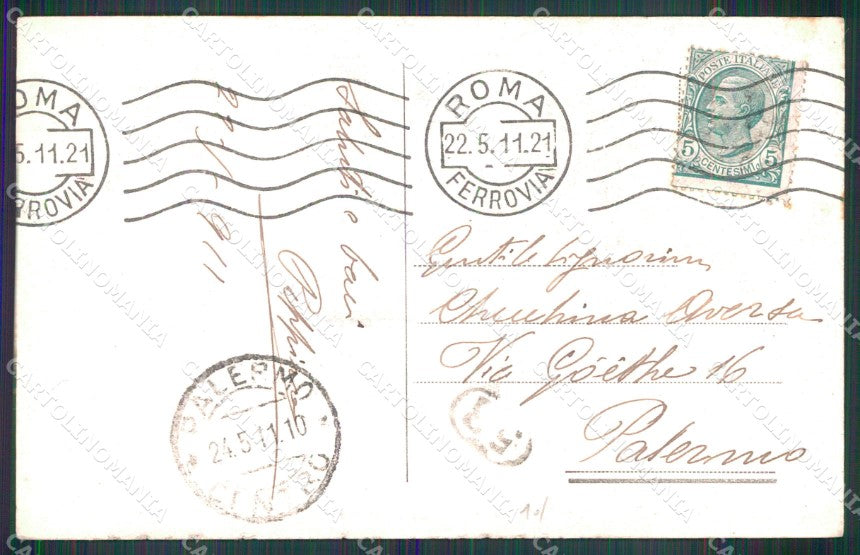 ROMA
5.11.21
FERROVIA
ROMA
22.5.11.21
FERROVIA
POSTE ITALIANE
5 5
CENTESIMI
Saluti e baci
22/5 911
Gentile Signorina
Checchina Aversa
Via Göethe 16
Palermo
PALERMO
24.5.11.10
CENTRO
CARTOLINOMANIA